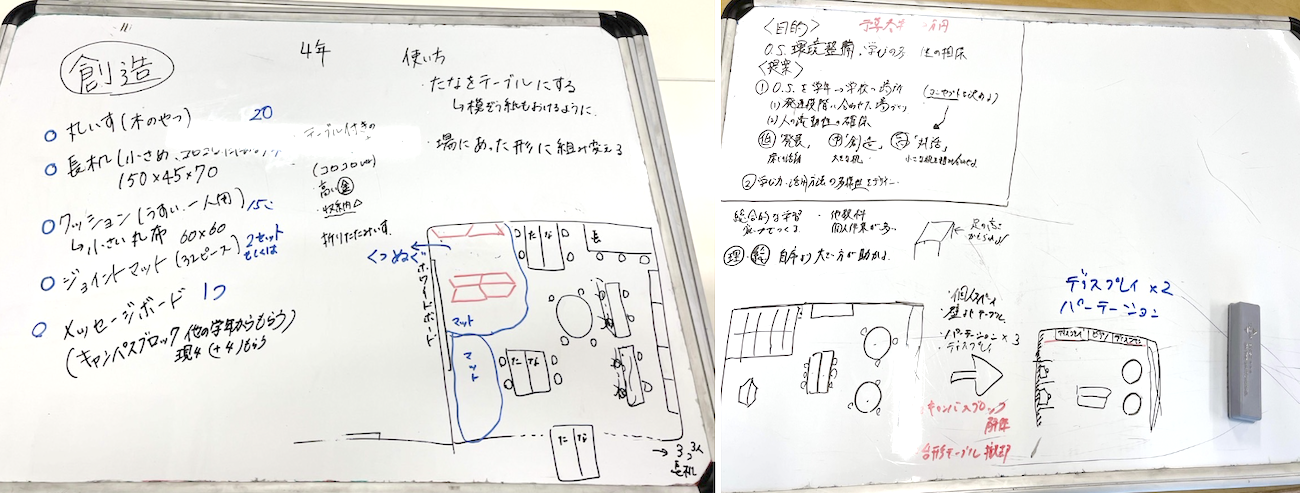 創造
4年
○ 丸いす(木のやつ) 20
○ 長机(小さめ、
150×45×70
○ クッション(うすい、一人用) 15こ
↳小さい丸布 60×60
○ ジョイントマット(32ピース) 2セット
もしくは
○ メッセージボード 1つ
(キャンパスブロック 他の学年からもらう)
現4 (+4)もらう
使い方
・たなをテーブルにする
↳模ぞう紙もおけるように。
・場にあった形に組み変える
テーブル付きの
(コロコロ
・高い 金
・収納△
折りたたみいす。
くつぬぐ
ホワイトボード
マット
マット
たな
長
たな
たな
→3つ
長机
〈目的〉
O.S.環境整備、学びの多 性の担保
〈提案〉
① O.S.を学年→学校の場所
(1)発達段階に合わせた場づくり
(2)人の流動性の確保
(コンセプトを決めよ)
低「発表」 中「創造」 高「対話」
大きな机
② 学び方・活用方法の多様性をデザイン
総合的な学習
・他教科
個人作業が多い
理・絵 自席より大きい方が助かる
足の高さ
・個人スペース
・壁とテーブル
・パーテーション×3
・ディスプレイ
キャンパスブロック
解体
台形テーブル 撤却
ディスプレイ×2
パーテーション